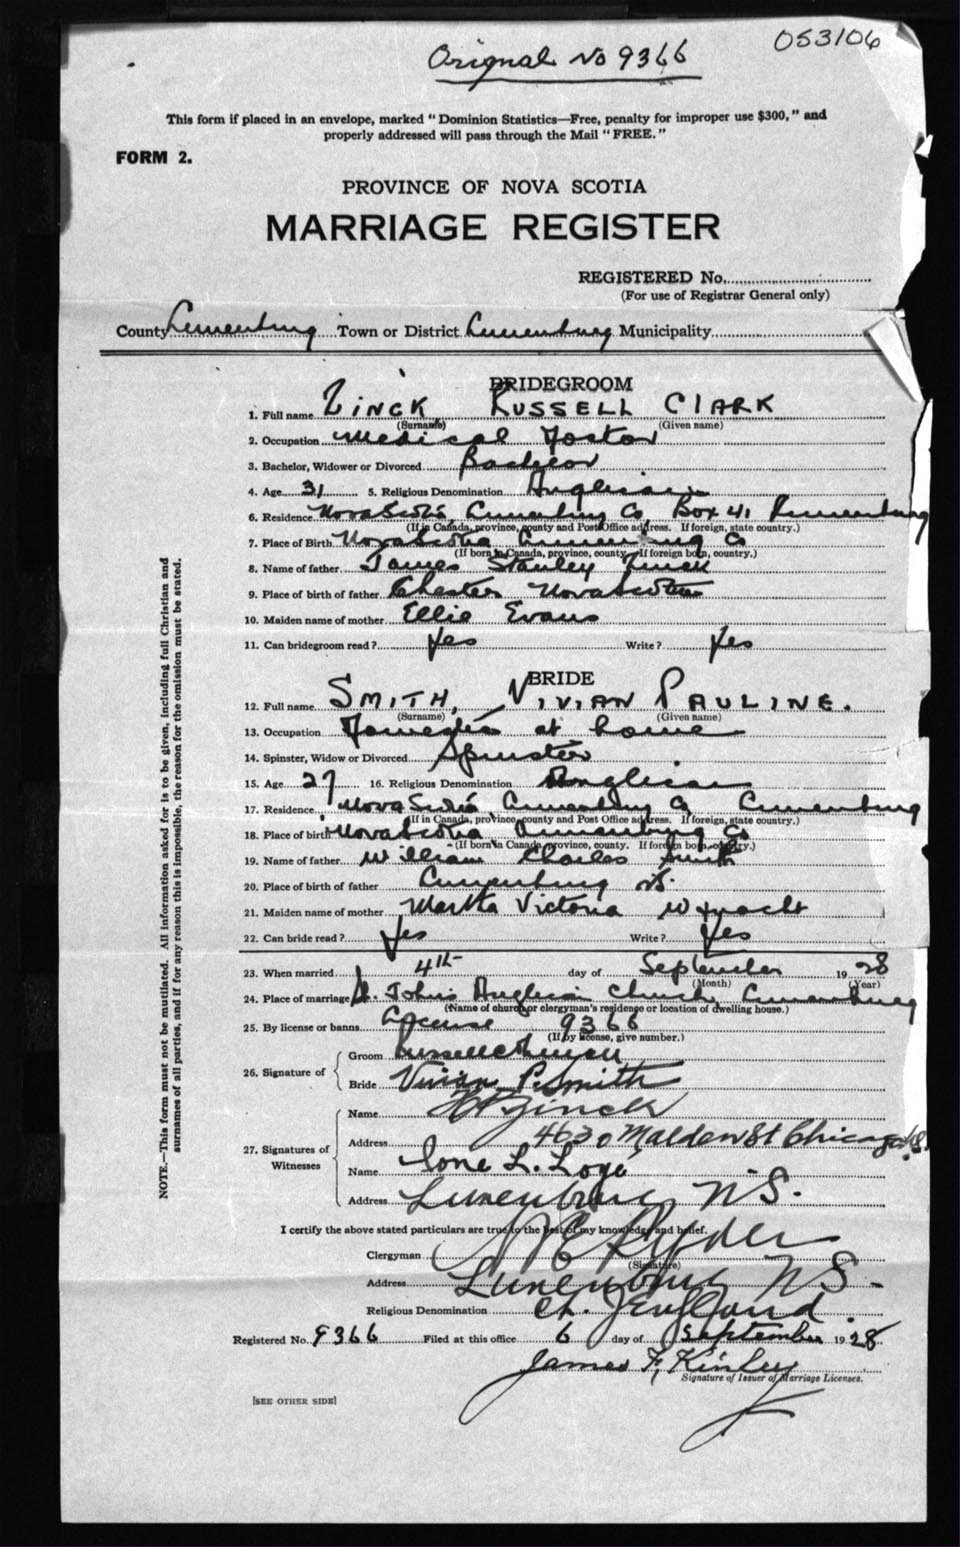 053106
Orignal No 9366
This form if placed in an envelope, marked "Dominion Statistics—Free, penalty for improper use $300," and
properly addressed will pass through the Mail "FREE."
FORM 2.
PROVINCE OF NOVA SCOTIA
MARRIAGE REGISTER
REGISTERED No.
(For use of Registrar General only)
County Lunenburg Town or District Lunenburg Municipality
BRIDEGROOM
1. Full name ZINCK, RUSSELL CLARK
(Surname) (Given name)
2. Occupation Medical Doctor
3. Bachelor, Widower or Divorced Bachelor
4. Age 31 5. Religious Denomination Anglican
6. Residence Nova Scotia, Lunenburg Co Box 41 Lunenburg
(If in Canada, province, county and Post Office address. If foreign, state country.)
7. Place of Birth Nova Scotia Lunenburg Co
(If born in Canada, province, county. If foreign born, country.)
8. Name of father James Stanley Zinck
9. Place of birth of father Chester Nova Scotia
10. Maiden name of mother Ellie Evans
11. Can bridegroom read? Yes Write? Yes
BRIDE
12. Full name SMITH, VIVIAN PAULINE.
(Surname) (Given name)
13. Occupation Domestic at home
14. Spinster, Widow or Divorced Spinster
15. Age 27 16. Religious Denomination Anglican
17. Residence Nova Scotia Lunenburg Co Lunenburg
(If in Canada, province, county and Post Office address. If foreign, state country.)
18. Place of birth Nova Scotia Lunenburg Co
(If born in Canada, province, county. If foreign born, country.)
19. Name of father William Charles Smith
20. Place of birth of father Lunenburg NS.
21. Maiden name of mother Martha Victoria
22. Can bride read? Yes Write? Yes
23. When married 4th day of September 1928
(Month) (Year)
24. Place of marriage St. Johns Anglican Church, Lunenburg
(Name of church or clergyman's residence or location of dwelling house.)
25. By license or banns License 9366
(If by license, give number.)
26. Signature of
Groom Russell C Zinck
Bride Vivian P. Smith
27. Signatures of Witnesses
Name Zinck
Address 4630 Malden St Chicago
Name Ione L. Loye
Address Lunenburg N.S.
I certify the above stated particulars are true to the best of my knowledge and belief.
Clergyman Ryder
(Signature)
Address Lunenburg N.S.
Religious Denomination Ch. of England.
Registered No. 9366 Filed at this office 6 day of September 1928
James F. Kinley
Signature of Issuer of Marriage Licenses.
[SEE OTHER SIDE]
NOTE.—This form must not be mutilated. All information asked for is to be given, including full Christian and
surnames of all parties, and if for any reason this is impossible, the reason for the omission must be stated.